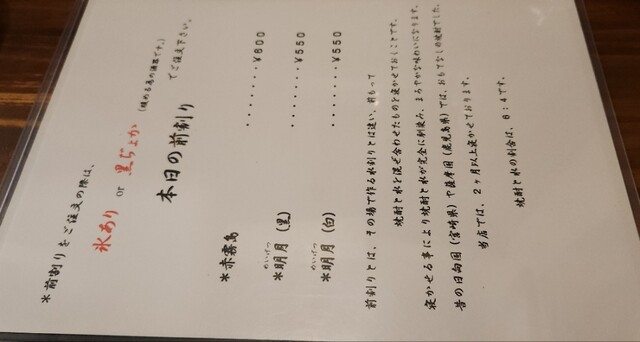 ＊前割りをご注文の際は、
氷あり or 黒ぢょか (暖める為の酒器です。)
でご注文下さい。
本日の前割り
＊赤霧島 ········¥800
めいげつ
＊明月(黒) ········¥550
めいげつ
＊明月(白) ········¥550
前割りとは、その場で作る水割りとは違い、前もって
焼酎と水を混ぜ合わせたものを寝かせておくことです。
寝かせる事により焼酎と水が完全に馴染み、まろやかな味わいになります。
昔の日向国(宮崎県)や薩摩国(鹿児島県)では、おもてなしの焼酎でした。
当店では、2ヶ月以上寝かせております。
焼酎と水の割合は、6:4です。